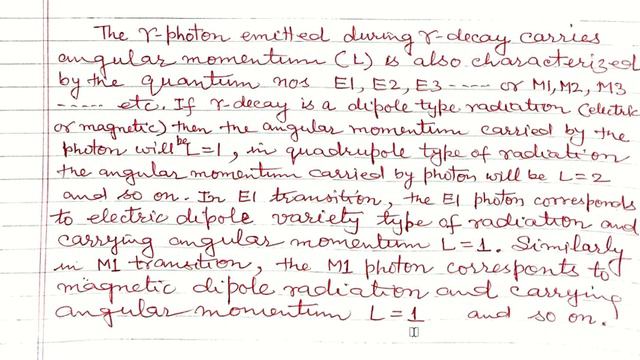 The γ-photon emitted during γ-decay carries
angular momentum (L) is also characterized
by the quantum nos E1, E2, E3 ---- or M1, M2, M3
----- etc. If γ-decay is a dipole type radiation (electric
or magnetic) then the angular momentum carried by the
photon will be L=1, in quadrupole type of radiation
the angular momentum carried by photon will be L=2
and so on. In E1 transition, the E1 photon corresponds
to electric dipole variety type of radiation and
carrying angular momentum L=1. Similarly
in M1 transition, the M1 photon corresponts to
magnetic dipole radiation and carrying
angular momentum L=1 and so on.